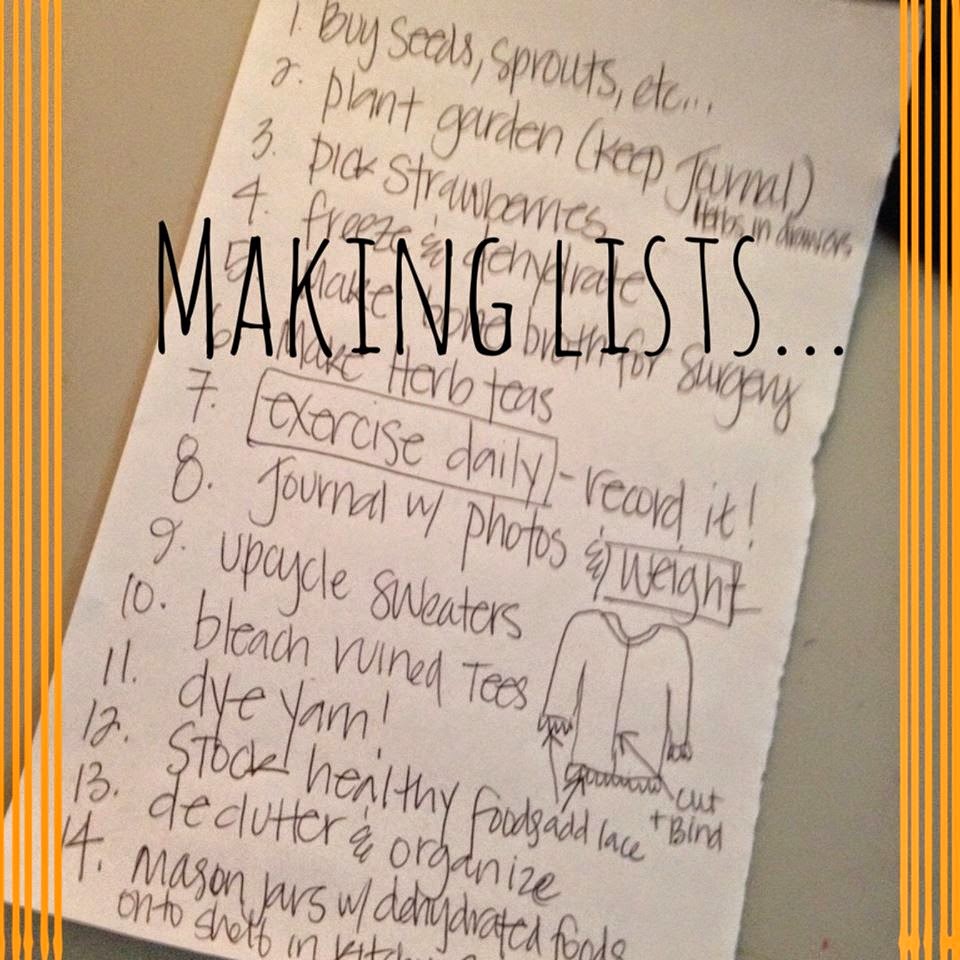 1. Buy Seeds, Sprouts, etc...
2. plant garden (keep Journal)
Herbs in drawers
3. pick Strawberries
4. freeze & dehydrate
MAKING LISTS...
5. Make bone broth for Surgery
6. Make Herb teas
7. exercise daily - record it!
8. Journal w/ photos & weight
9. upcycle Sweaters
10. bleach ruined Tees
11. dye yarn!
12. Stock healthy foods
add lace
cut
+ Bind
13. declutter & organize
14. mason jars w/ dehydrated foods
onto shelf in